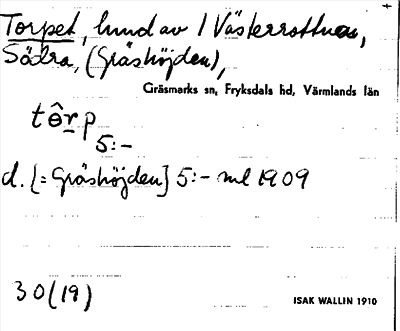 Torpet, hmd av 1 Västerrottna,
Södra, (Gräshöjden),
Gräsmarks sn, Fryksdals hd, Värmlands län
tô̱rp
5:-
d. [= Gräshöjden] 5:- ml 1909
30(19)
ISAK WALLIN 1910